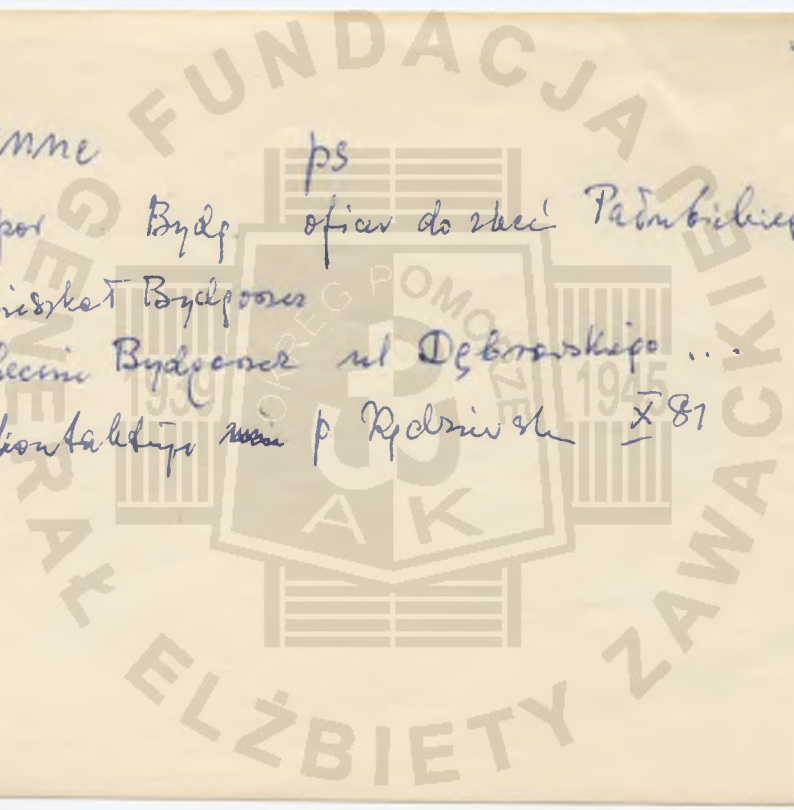 ps
por Bydg. oficer do zleceń Pałubickieg
mieszkał Bydgoszcz
obecnie Bydgoszcz ul Dąbrowskiego ...
kontaktuje p. X 81
FUNDACJA GENERAŁ ELŻBIETY ZAWACKIEJ
OKRĘG POMORZE
1939 1945
AK